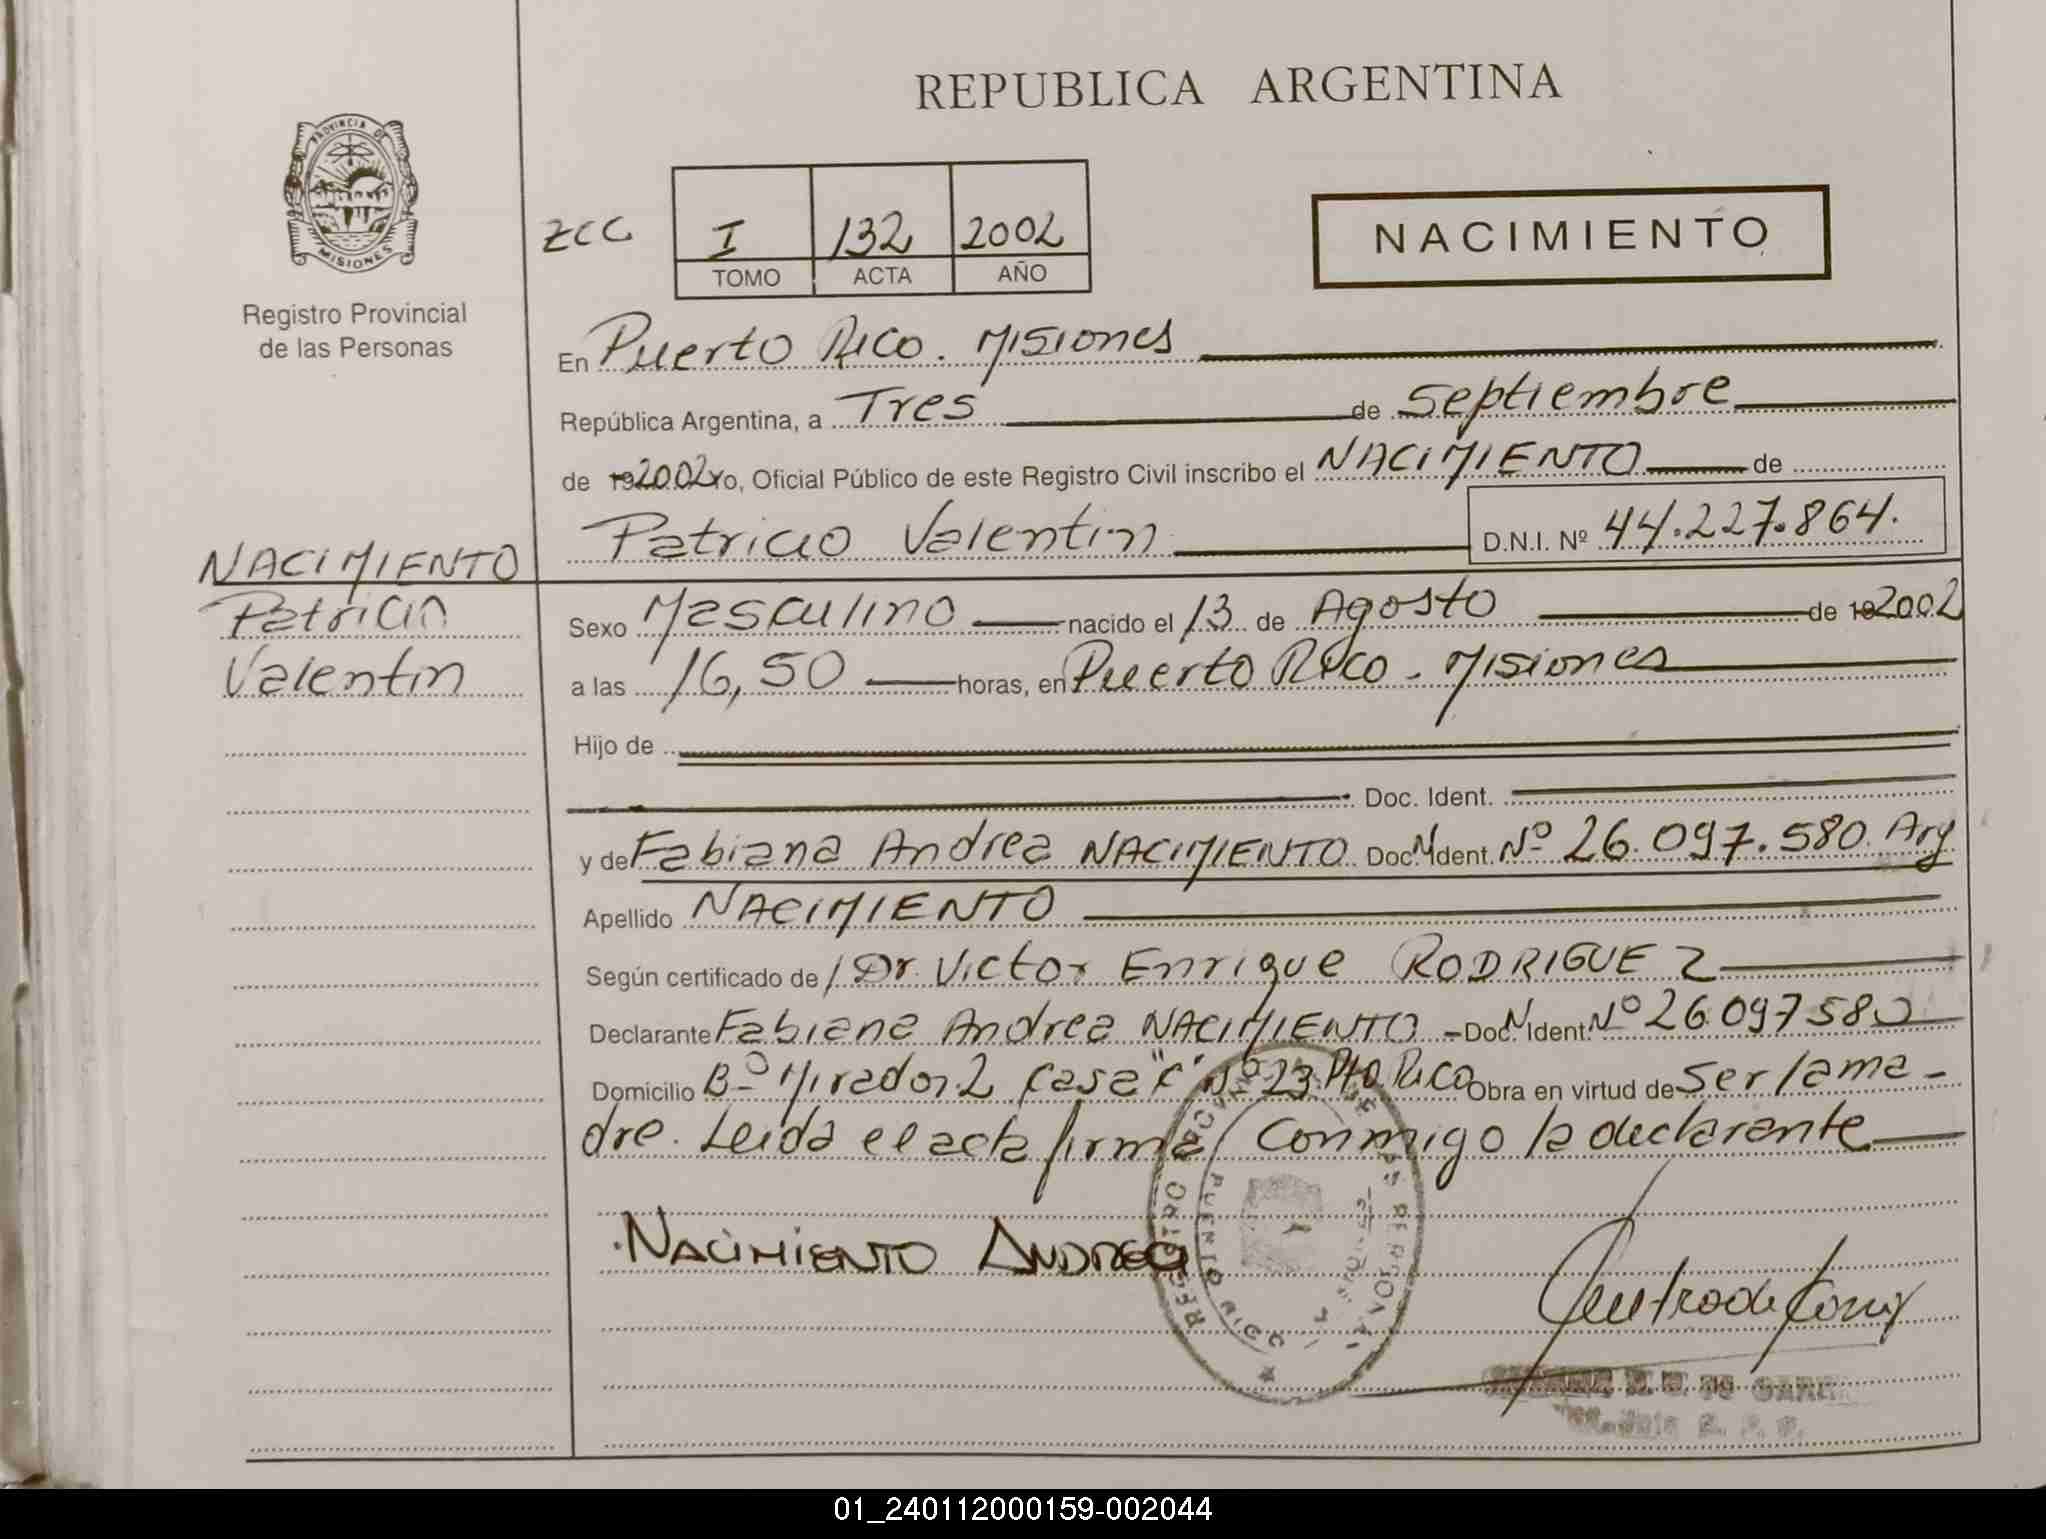 REPUBLICA ARGENTINA
PROVINCIA DE
MISIONES
Registro Provincial
de las Personas
ZCC I 132 2002
TOMO ACTA AÑO
NACIMIENTO
En Puerto Rico. Misiones
República Argentina, a Tres de Septiembre
de 19 2002 Yo, Oficial Público de este Registro Civil inscribo el NACIMIENTO de
Patricio Valentin D.N.I. Nº 44.227.864.
NACIMIENTO
Patricio
Valentin
Sexo Masculino nacido el 13 de Agosto de 19 2002
a las 16,50 horas, en Puerto Rico - Misiones
Hijo de
Doc. Ident.
y de Fabiana Andrea NACIMIENTO Doc. N Ident. Nº 26.097.580 Arg
Apellido NACIMIENTO
Según certificado de Dr. Victor Enrique RODRIGUEZ
Declarante Fabiana Andrea NACIMIENTO - Doc. N Ident. Nº 26.097580
Domicilio Bº Mirador 2 Casa "C" Nº 23 Pto Rico Obra en virtud de Ser la ma-
dre. Leida el acta firma conmigo la declarante
NACIMIENTO ANDREA
REGISTRO PROVINCIAL DE LAS PERSONAS
PUERTO RICO
01_240112000159-002044